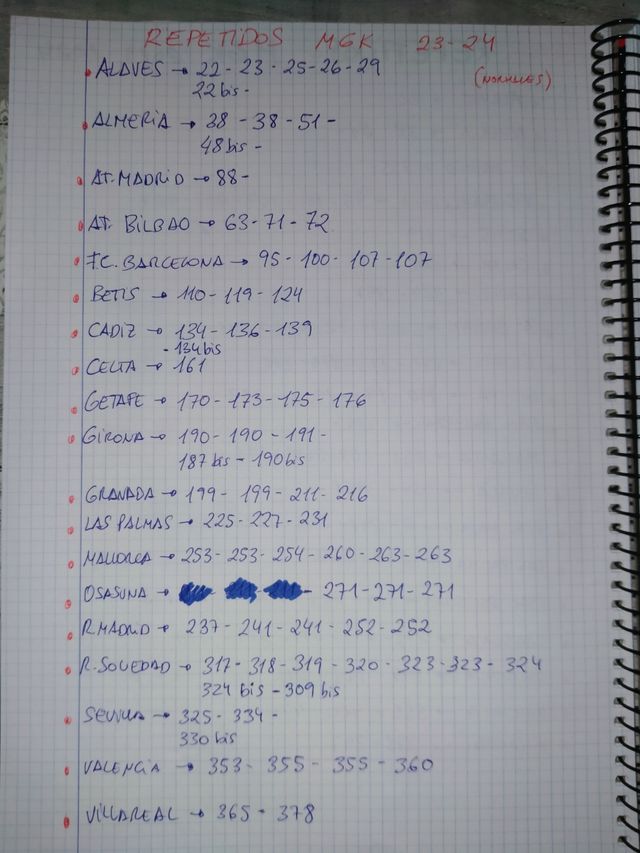 REPETIDOS MGK 23-24
(NORMALES)
• ALAVES → 22 - 23 - 25 - 26 - 29
22 bis -
• ALMERIA → 38 - 38 - 51 -
48 bis -
• AT. MADRID → 88 -
• AT. BILBAO → 63 - 71 - 72
• F.C. BARCELONA → 95 - 100 - 107 - 107
• BETIS → 110 - 119 - 124
• CADIZ → 134 - 136 - 139
- 134 bis
• CELTA → 161
• GETAFE → 170 - 173 - 175 - 176
• GIRONA → 190 - 190 - 191 -
187 bis - 190 bis
• GRANADA → 199 - 199 - 211 - 216
• LAS PALMAS → 225 - 227 - 231
• MALLORCA → 253 - 253 - 254 - 260 - 263 - 263
• OSASUNA → 271 - 271 - 271
• R. MADRID → 237 - 241 - 241 - 252 - 252
• R. SOCIEDAD → 317 - 318 - 319 - 320 - 323 - 323 - 324
324 bis - 309 bis
• SEVILLA → 325 - 334 -
330 bis
• VALENCIA → 353 - 355 - 355 - 360
• VILLAREAL → 365 - 378